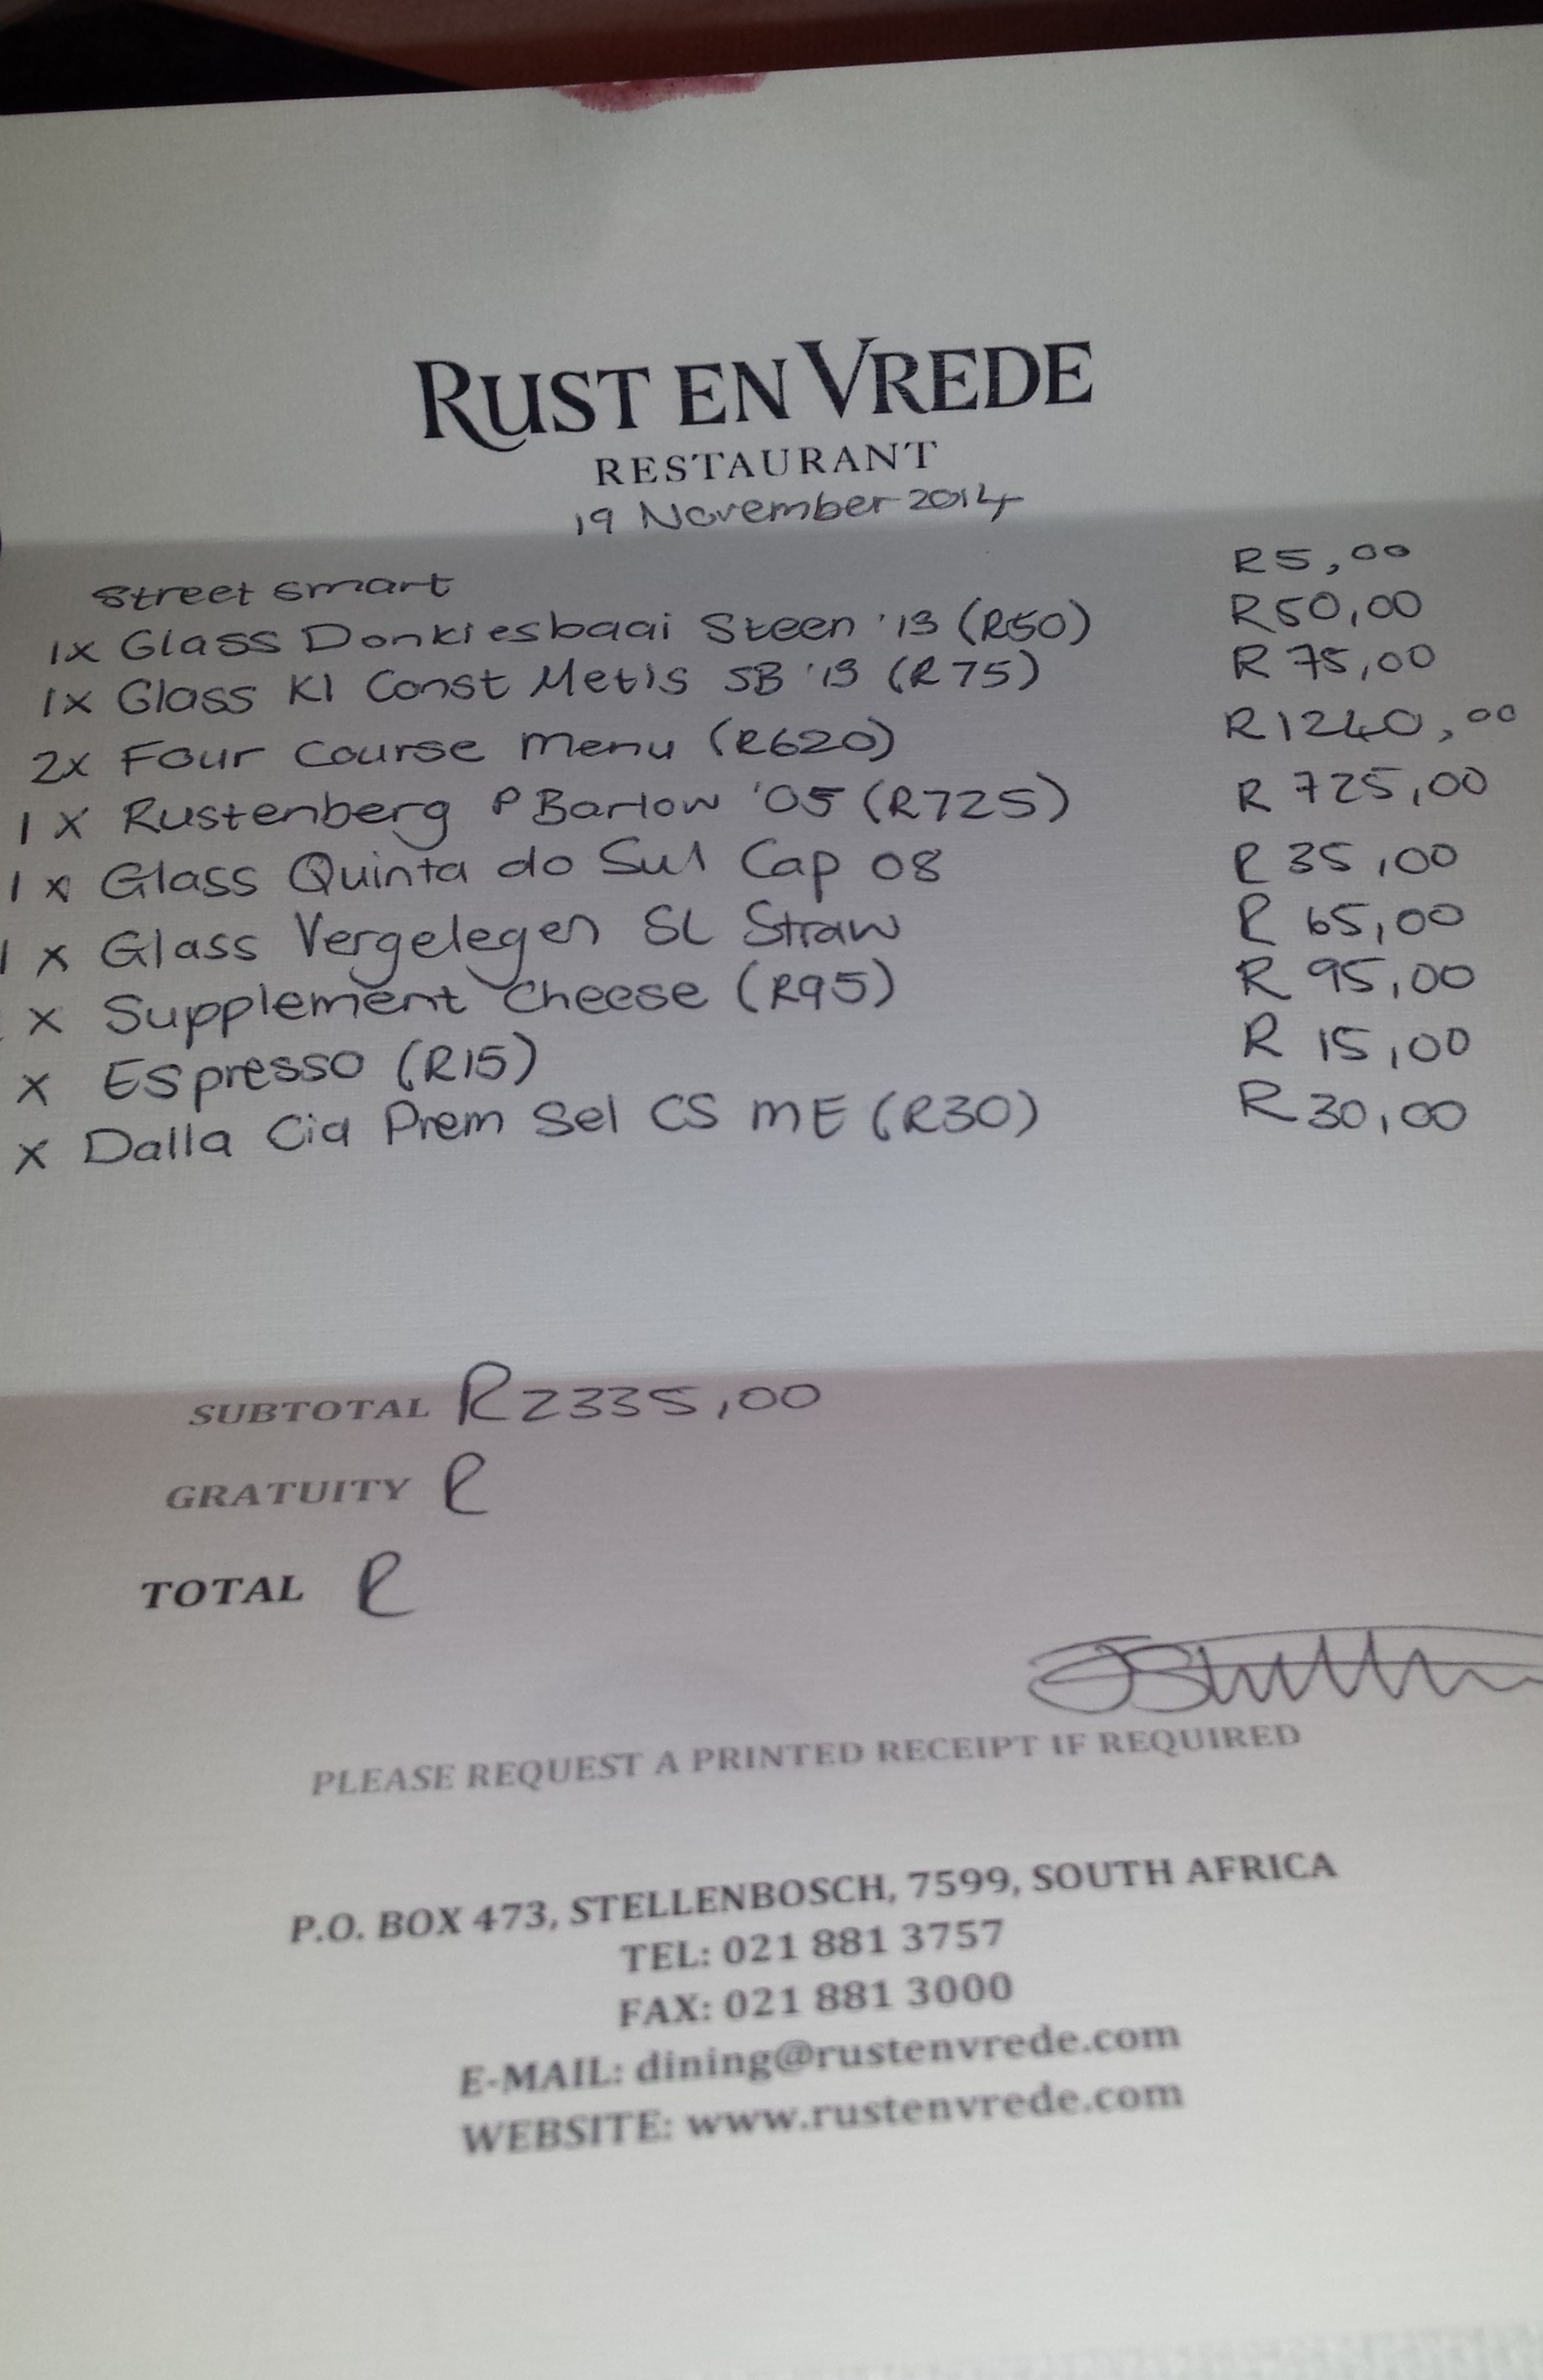 RUST EN VREDE
RESTAURANT
19 November 2014
Street smart R5,00
1x Glass Donkiesbaai Steen '13 (R50) R50,00
1x Glass Kl Const Metis SB '13 (R75) R75,00
2x Four Course Menu (R620) R1240,00
1 x Rustenberg P Barlow '05 (R725) R 725,00
1 x Glass Quinta do Sul Cap 08 R 35,00
1 x Glass Vergelegen SL Straw R 65,00
x Supplement Cheese (R95) R 95,00
x Espresso (R15) R 15,00
x Dalla Cia Prem Sel CS ME (R30) R 30,00
SUBTOTAL R2335,00
GRATUITY R
TOTAL R
PLEASE REQUEST A PRINTED RECEIPT IF REQUIRED
P.O. BOX 473, STELLENBOSCH, 7599, SOUTH AFRICA
TEL: 021 881 3757
FAX: 021 881 3000
E-MAIL: dining@rustenvrede.com
WEBSITE: www.rustenvrede.com